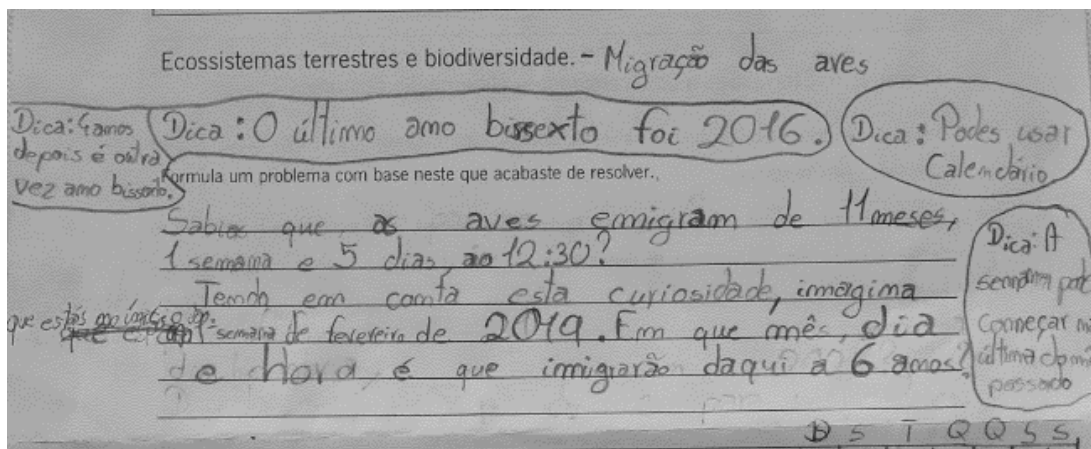 Ecossistemas terrestres e biodiversidade. - Migração das aves
Dica: 4 anos
depois é outra
vez ano bissexto.
Dica: O último ano bissexto foi 2016.
Dica: Podes usar
Calendário
Formula um problema com base neste que acabaste de resolver.
Sabias que as aves emigram de 11 meses,
1 semana e 5 dias, ao 12:30?
Tendo em conta esta curiosidade, imagina
que estás no início da 1ª semana de fevereiro de 2019. Em que mês, dia
e hora é que imigrarão daqui a 6 anos?
Dica: A
semana pode
começar
última do mês
passado
D S T Q Q S S